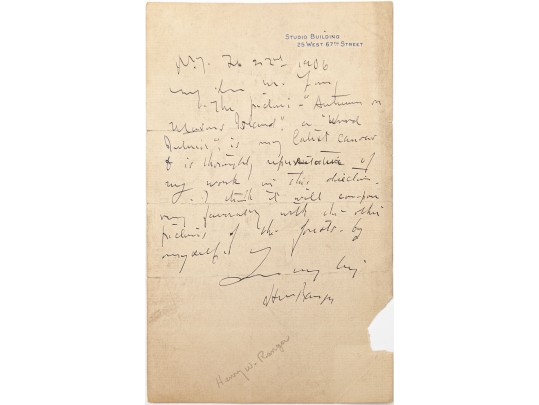 STUDIO BUILDING
25 WEST 67TH STREET
N.Y. Feb 22nd 1906
My dear Mr.
The picture - "Autumn on
Island", a "Wood
is my latest canvas
& is thoroughly representative of
my work in this direction.
I think it will compare
very favorably with the other
pictures of the forests by
myself.
HW Ranger
Henry W. Ranger